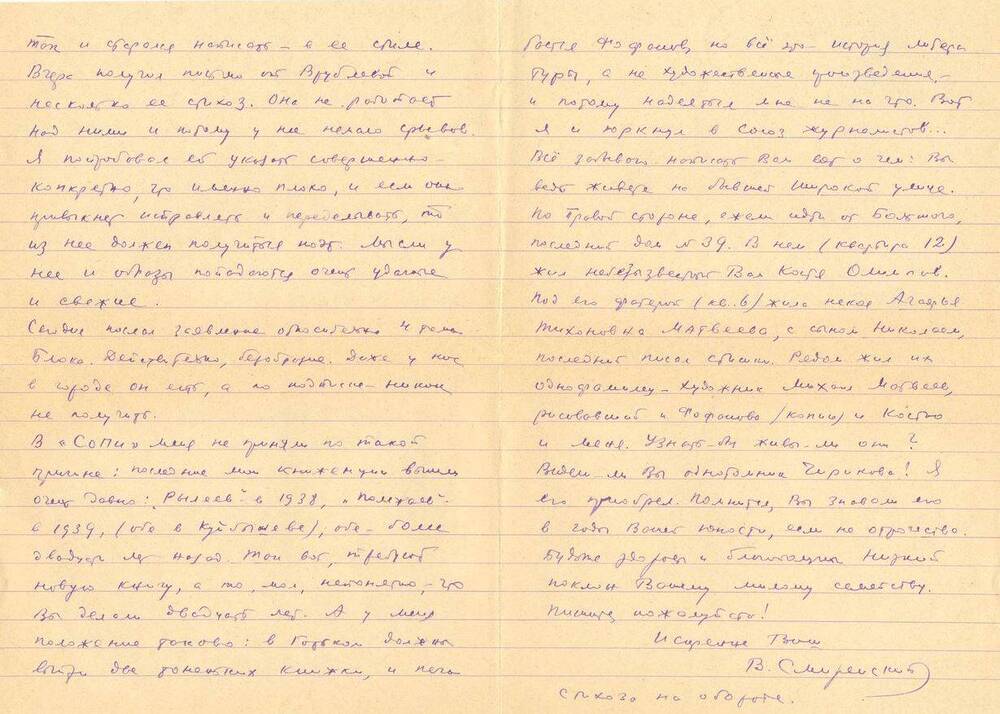 так и старался написать – в ее стиле.
Вчера получил письмо от Врублевой и
несколько ее стихоз. Она не работает
над ними и потому у нее немало срывов.
Я попробовал ей указать совершенно
конкретно, что именно плохо, и если она
привыкнет исправлять и переделывать, то
из нее должен получиться поэт. Мысли у
нее и образы попадаются очень удачные
и свежие.
Сегодня послал заявление относительно 4 тома
Блока. Действительно, безобразие. Даже у нас
в городе он есть, а по подписке – никак
не получить.
В «СОПИ» меня не приняли по такой
причине: последние мои книженции вышли
очень давно: "Рылеев" в 1938, "Полежаев"
в 1939, (оба в Куйбышеве); оба – более
двадцати лет назад. Так вот, требуют
новую книгу, а то, мол, непонятно – что
Вы делали двадцать лет. А у меня
положение таково: в Горьком должны
выйти две тонетких книжки, и печа
тается Фофанов, но всё это – история литера
туры, а не художественные произведения, –
и потому надеяться мне не на что. Вот
я и юркнул в Союз журналистов...
Всё забываю написать Вам вот о чем: Вы
ведь живете на бывшей Широкой улице.
По правой стороне, ежели идти от Большого,
последний дом № 39. В нем (квартира 12)
жил небезызвестный Вам Костя Олимпов.
Под его квартирой (кв. 6) жила некая Агафья
Тихоновна Матвеева, с сыном Николаем,
последний писал стишки. Рядом жил их
однофамилец – художник Михаил Матвеев,
рисовавший и Фофанова (копии) и Костю
и меня. Узнать бы живы-ли они?
Видели-ли Вы однотомник Чирикова! Я
его приобрел. Помнится, Вы знавали его
в годы Вашей юности, если не отрочества.
Будьте здоровы и благополучны. Низкий
поклон Вашему милому семейству.
Пишите пожалуйста!
Искренне Ваш
В. Смиренский
Стихоза на обороте.